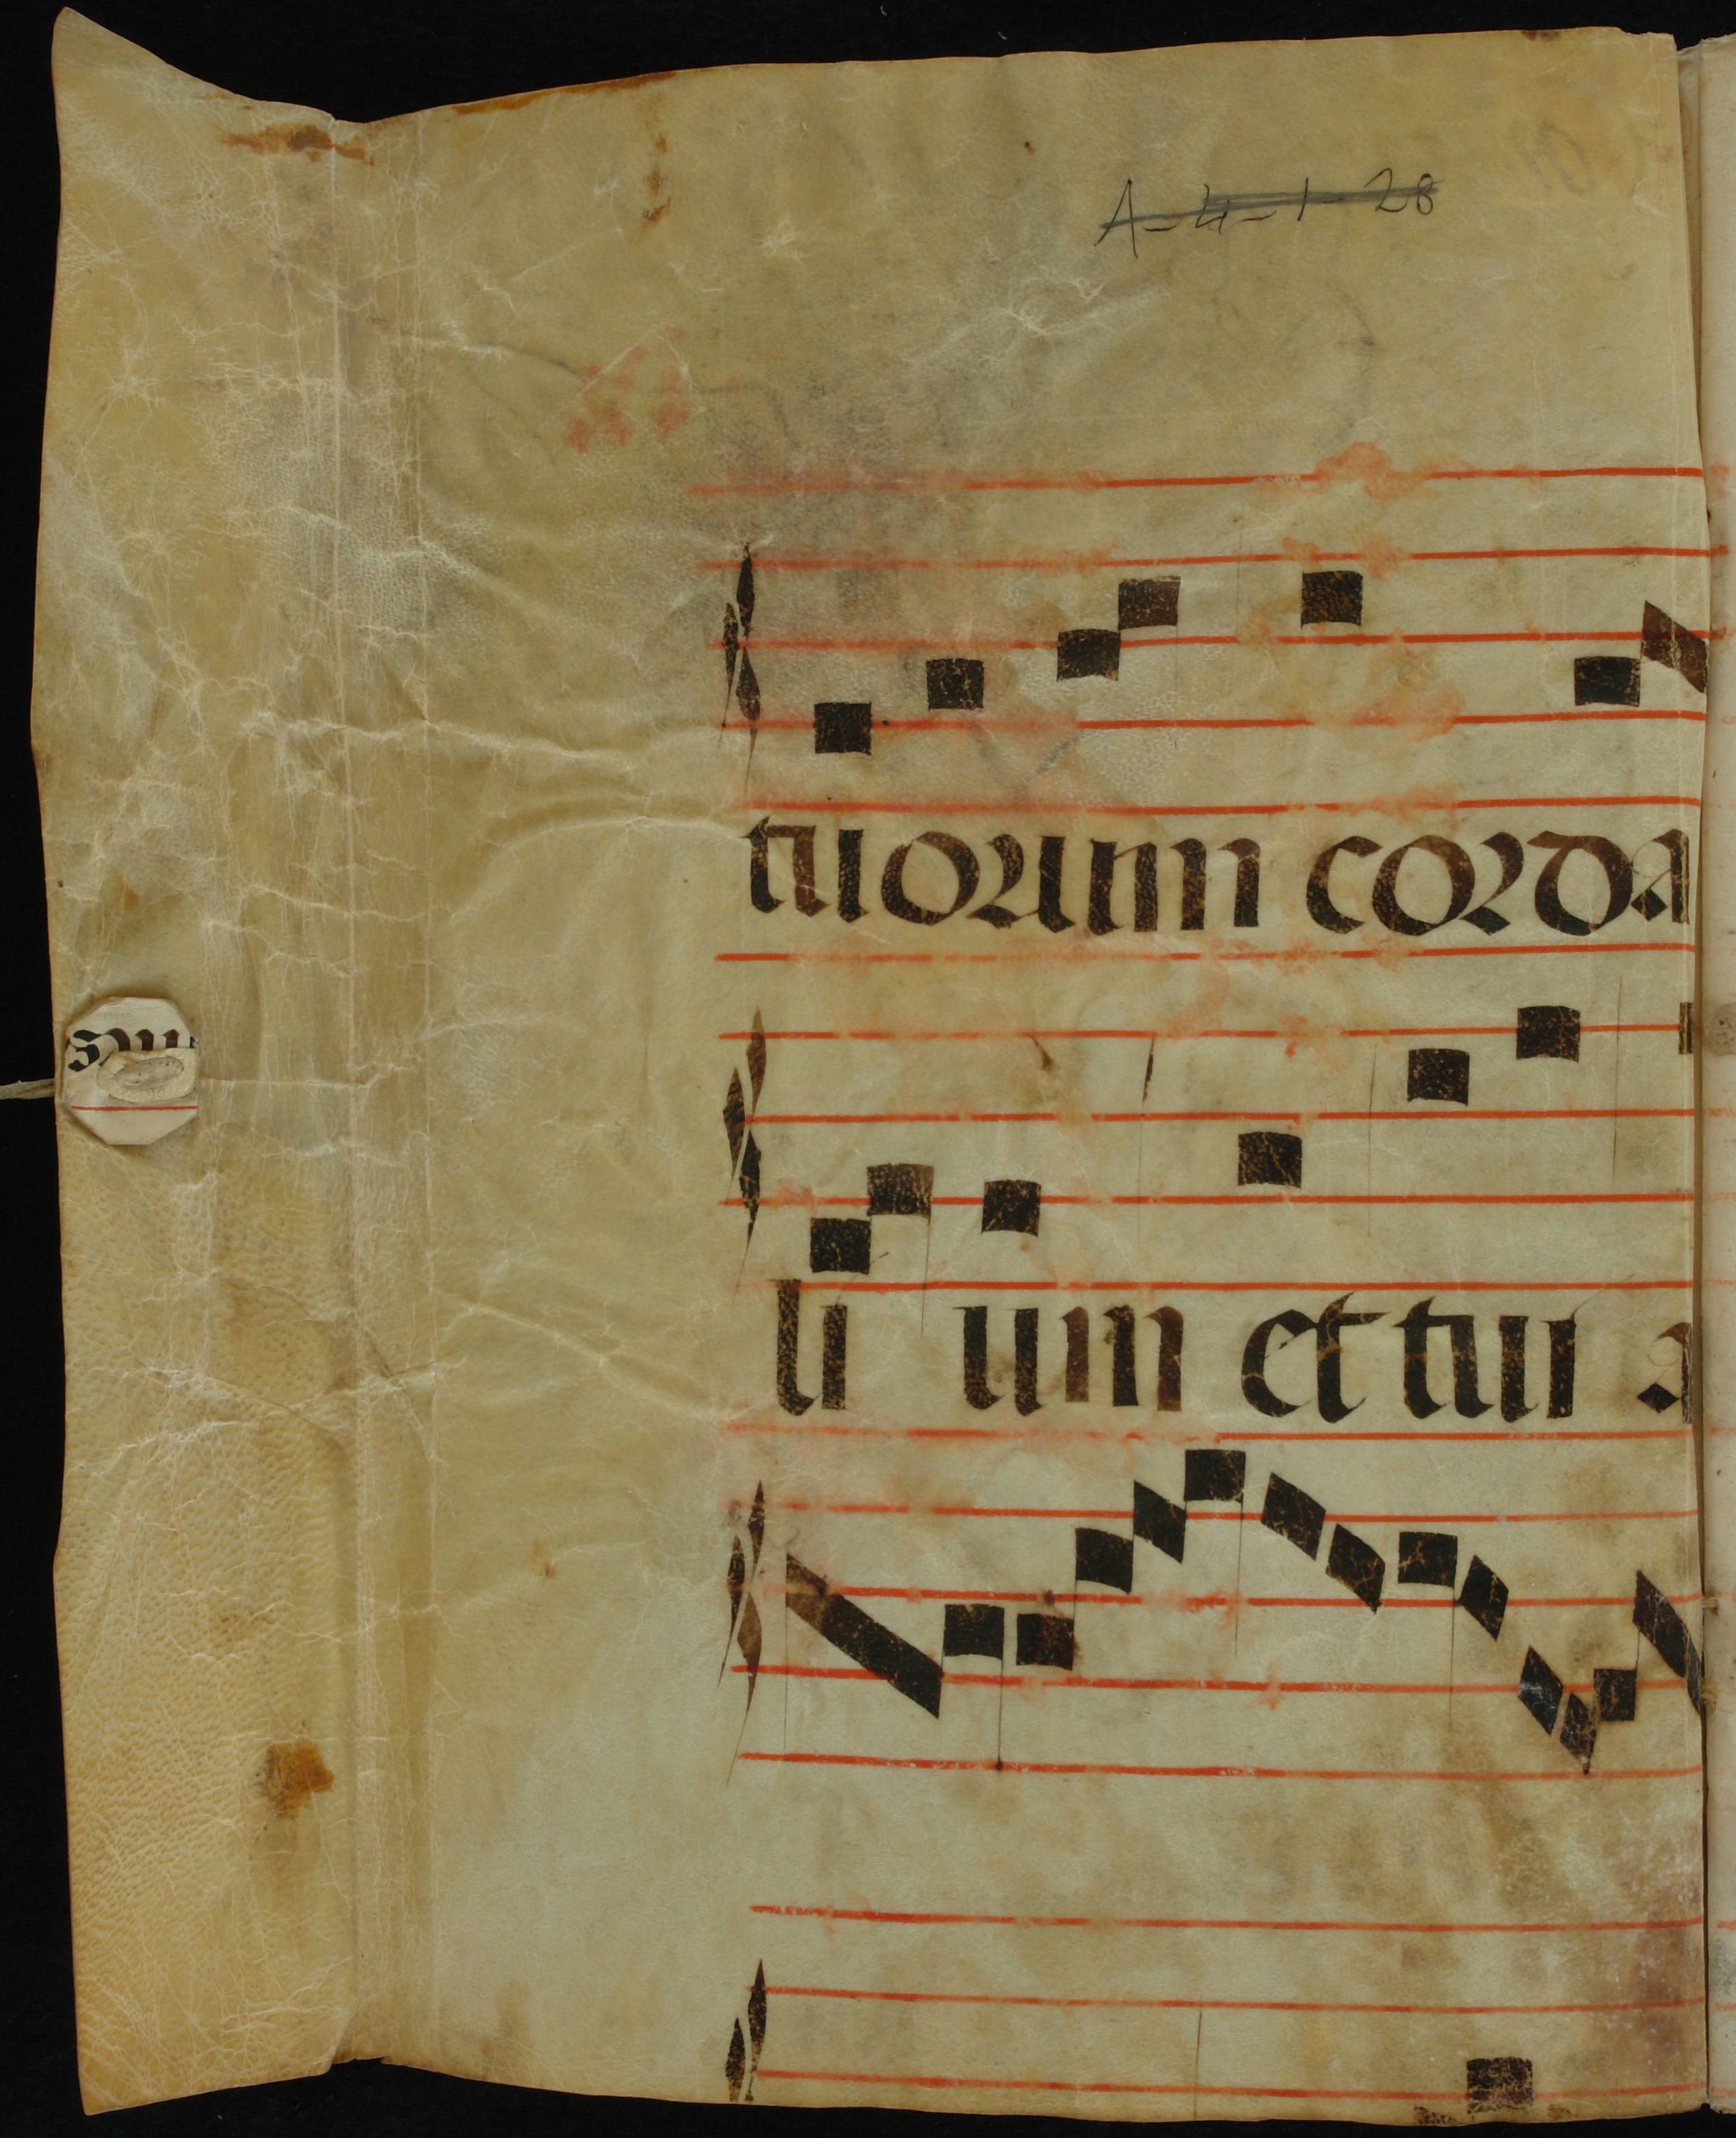 A-4-1-28
tuorum corda
li um et tui a